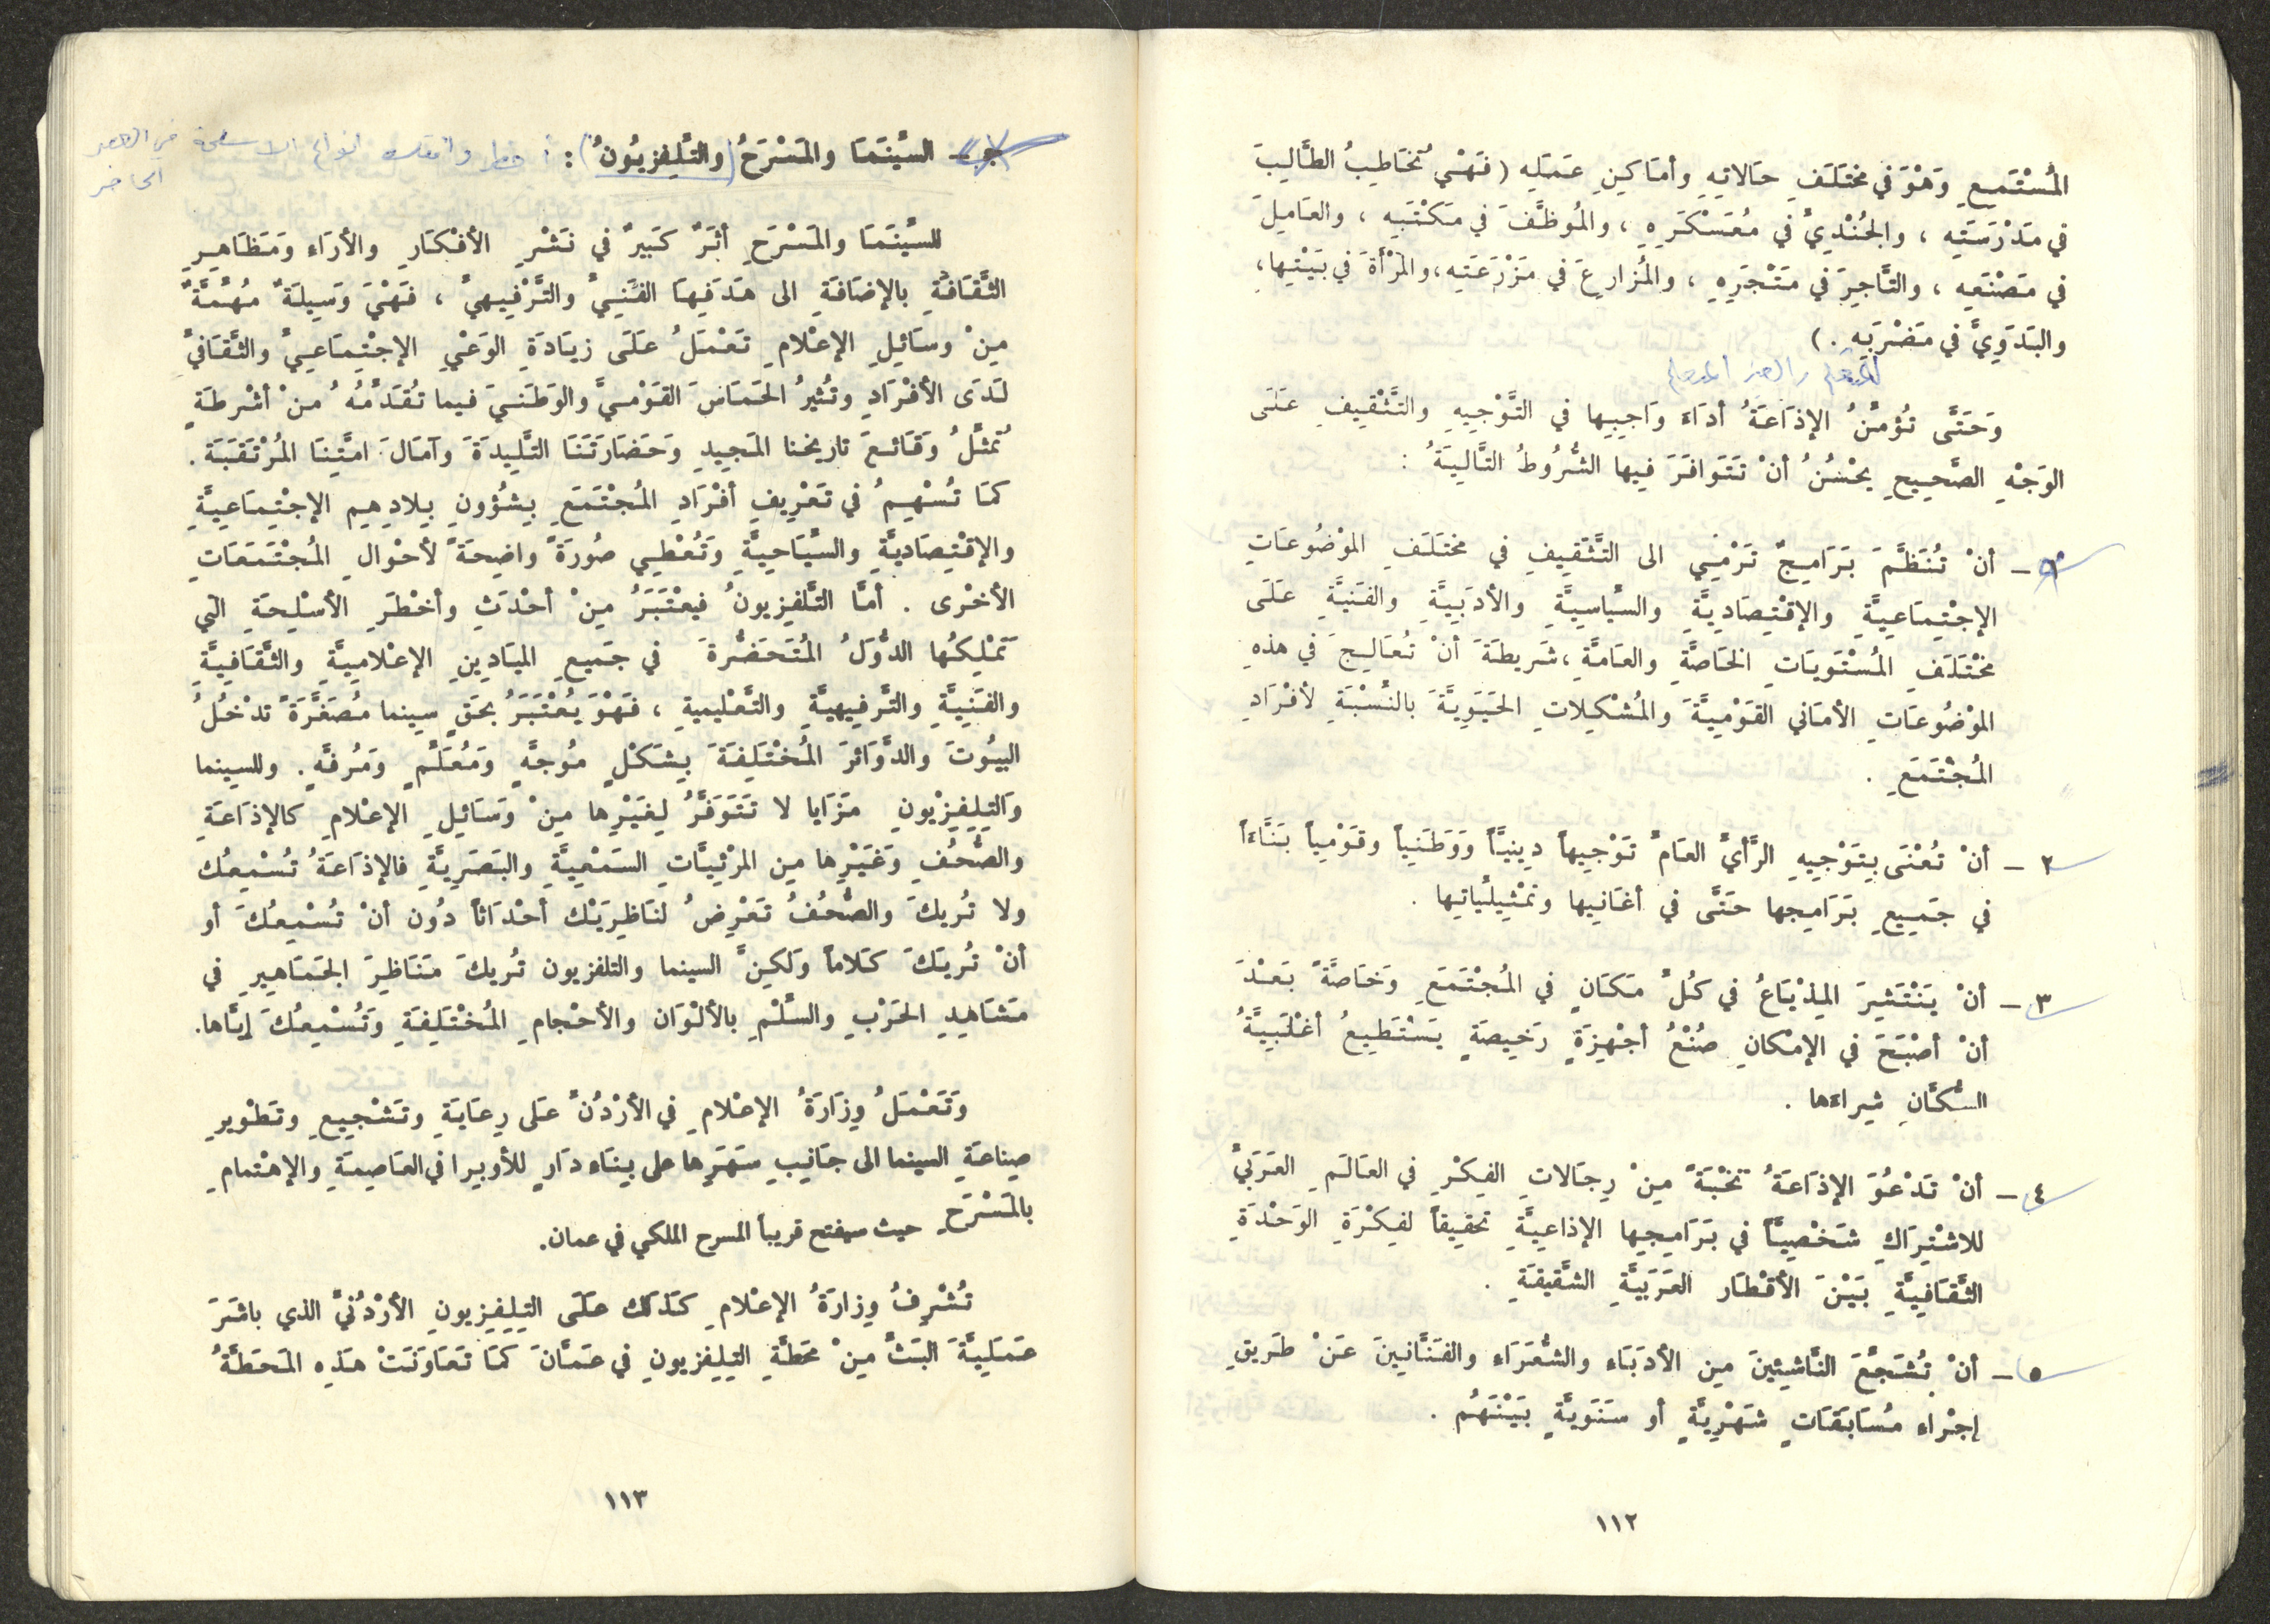 المُسْتَمِعِ وَهْوَ في مختَلَفِ حَالاتِهِ وأمَاكِنِ عَمَلِه (فَهْيُ تخَاطِبُ الطَّالِبَ
في مَدْرَسَتِه ، والجُنْدِيُّ في مُعَسْكَرِهِ ، والمُوظَّفَ في مَكْتَبِه ، والعَامِلَ
في مَصْنَعِه ، والتَّاجِرَ في مَتْجَرِهِ ، والمُزارِعَ في مَزْرَعَتِه، والمَرْأةَ في بَيْتِها،
والبَدَوِيَّ في مَضْرَبِه . )
وَحَتَّى تُؤمِّنُ الإذَاعَةُ أدَاءَ وَاجِبِها في التَّوْجِيهِ والتَّثْقِيفِ عَلَى
الوَجْهِ الصَّحِيحِ يحْسُنُ أنْ تَتَوَافَرَ فِيها الشُّرُوطُ التَّالِيَةُ :
١ – أنْ تُنَظَّمَ بَرَامِجٌ تَرْمِي الى التَّثْقِيفِ في مختَلَفِ الموْضُوعَاتِ
الإجْتِمَاعِيَّةِ والإقْتِصَادِيَّةِ والسِّياسِيَّةِ والأدَبِيَّةِ والفَنيَّةِ عَلَى
مخْتَلَفِ المُسْتَوِيَاتِ الخَاصَّةِ والعَامَّةِ ، شَريطَةَ أنْ تُعَالِجَ في هذهِ
الموْضُوعَاتِ الأمَاني القَوْمِيَّةَ والمُشْكِلاتِ الحَيَوِيَّةَ بالنِّسْبَةِ لأفْرَادِ
المُجْتَمَعِ .
٢ – أنْ تُعْنَى بِتَوْجِيهِ الرَّأيِّ العَامِّ تَوْجِيهاً دِينِيَّاً وَوَطَنِياً وقوْمِياً بَنَّاءَاً
في جَمِيعِ بَرَامِجها حَتَّى في أغَانِيها وتمْثِيلِيَّاتِها .
٣ – أنْ يَنْتَشِرَ المِذْيَاعُ في كُلِّ مَكَانٍ في المُجْتَمَعِ وَخَاصَّةً بَعْدَ
أنْ أصْبَحَ في الإمْكانِ صُنْعُ أجْهِزَةٍ رَخِيصَةٍ يَسْتَطِيعُ أغْلَبِيَّةُ
السُّكَّانِ شِراءها .
٤ – أنْ تَدْعُوَ الإذَاعَةُ نخْبَةً مِنْ رِجَالاتِ الفِكْرِ في العَالَمِ العَرَبيِّ
للاشْتِرَاكِ شَخْصِيَّاً في بَرَامِجِها الإذاعِيَّةِ تحقِيقاً لفِكْرَةِ الوَحْدَةِ
الثَّقَافِيَّةِ بَيْنَ الأقْطَار العَرَبِيَّةِ الشَّقِيقَةِ .
٥ – أنْ تُشَجِّعَ النَّاشِئِينَ مِن الأدَبَاء والشُّعَرَاء والفَنَّانِينَ عَنْ طَرِيقِ
إجْراء مُسَابَقَاتٍ شَهْرِيَّةٍ أو سَنَوِيَّةٍ بَيْنَهُم .
١١٢
جـ – السِّينَمَا والمَسْرَحُ (والتِّلِيفزيُونُ) : حظر وانواع الاسلحة في العصر
الحاضر
للسِّينَمَا والمَسْرَحِ أثَرٌ كَبيرٌ في نَشْرِ الأفْكَارِ والأرَاء وَمَظَاهِرِ
الثَّقَافَةِ بالإضَافَةِ الى هَدَفِهَا الفَنِّيِّ والتَّرْفِيهيِّ ، فَهْيَ وَسِيلَةٌ مُهِمَّةٌ
مِنْ وسَائِلِ الإعْلامِ تَعْمَلُ عَلَى زيَادَةِ الوَعْيِ الإجْتِمَاعِيِّ والثَّقَافيِّ
لَدَى الأفْرَادِ وتُثيرُ الحَمَاسَ القَوْمِيَّ والوَطَنيَ فيما تُقَدِّمُهُ منْ أشْرطَةٍ
تُمثِّلُ وَقَائعَ تاريخنا المَجِيدِ وَحَضَارَتَنَا التَّلِيدَةَ وآمَالَ امَّتِنَا المُرْتَقَبَة .
كمَا تُسْهِمُ في تَعْرِيفِ أفْرَادِ المُجْتَمَعِ بِشُؤونِ بِلادِهِمِ الإجْتِمَاعِيَّةِ
والإقْتِصَاديَّةِ والسِّيَاحِيَّةِ وَتُعْطِي صُورَةً واضِحَةً لأحْوالِ المُجْتَمَعَاتِ
الأخْرى . أمَّا التَّلفِزيونُ فيعْتَبَرُ مِنْ أحْدَثِ وأخْطَرِ الأسْلِحَةِ الَتي
تَمْلِكُهَا الدُّوَلُ المُتَحَضِّرةَ في جَميعِ المِيَادِينِ الإعْلامِيَّةِ والثَّقَافِيَّةِ
والفَنِيَّةِ والتَّرفِيهيَّةِ والتَّعْليميةِ ، فَهْوَ يُعْتَبَرُ بحَقٍ سِينما مُصَغَّرَةً تدْخُلُ
البيُوتَ والدَّوَائرَ المُخْتَلِفَةَ بِشَكْلٍ مُوجَّهٍ وَمُعَلِّمٍ وَمُرفَّهٍ . وللسِينما
وَالتِيلِفِزْيونِ مَزَايا لا تَتَوَفَّرُ لِغَيْرِها مِنْ وَسَائِلِ الإعْلامِ كالإذَاعَةِ
والصُّحُفِ وَغَيْرِها مِن المرْئِيَّاتِ السَمْعِيَّةِ والبَصَرِيَّةِ فالإذَاعَةُ تُسْمِعُك
ولا تُريكَ والصُّحُفُ تَعْرِضُ لنَاظِرَيْك أحْدَاثاً دُون أنْ تُسْمِعُكَ أو
أنْ تُريَكَ كَلاماً وَلَكِنَّ السينما والتلفزيون تُريكَ مَنَاظِرَ الجَمَاهِيرِ في
مَشَاهِدِ الحَرْبِ والسِّلْمِ بالألْوَان والأحْجامِ المُخْتَلِفَةِ وَتُسْمِعُكَ إيَّاها.
وَتَعْمَلُ وِزَارَةُ الإعْلامِ في الأرْدُنِّ عَلى رِعَايَةِ وتَشْجِيعِ وتَطْويرِ
صِناعَةِ السينما الى جَانِبِ سَهَرِها على بِنَاء دَارٍ للأوبرا في العَاصِمَةِ والإهْتمامِ
بالمَسْرَحِ حيث سيفتح قريباً المسرح الملكي في عمان.
تُشْرِفُ وِزارَةُ الإعْلامِ كَذَلك عَلَى التِيلِفِزيونِ الأرْدُنيِّ الذي باشَرَ
عَمَلِيَّةَ البَثِّ مِنْ محَطَّةِ التِيلِيفزيونِ في عَمَّانَ كمَا تَعَاوَنَتْ هَذِه المَحَطَّةُ
١١٣